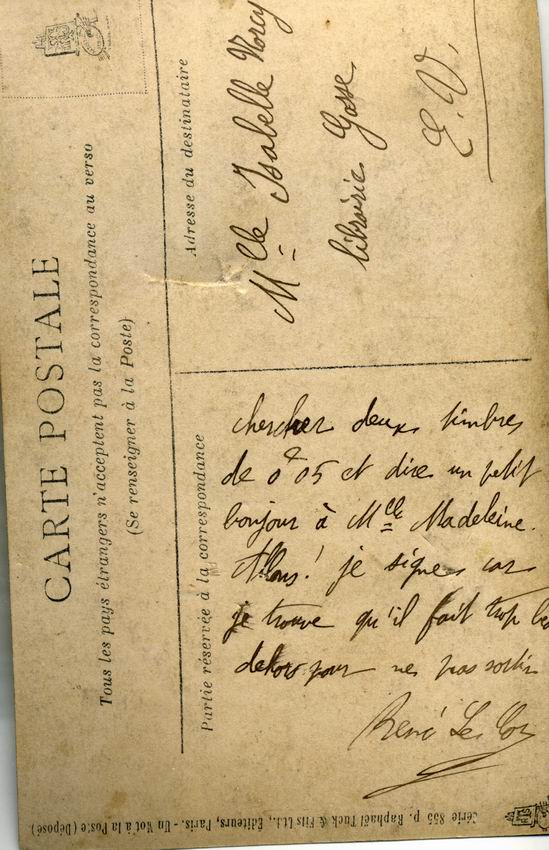 CARTE POSTALE
Tous les pays étrangers n'acceptent pas la correspondance au verso
(Se renseigner à la Poste)
Partie réservée à la correspondance
Adresse du destinataire
chercher deux timbres
de 0f 05 et dire un petit
bonjour à Mlle Madeleine.
Allons! je signe car
je trouve qu'il fait trop
dehors pour ne pas sortir
René Le
Mlle Isabelle
librairie Gosse
E. V.
Série 855 p. Raphaël Tuck & Fils Ltd., Éditeurs, Paris. - Un Mot à la Poste (Déposé)